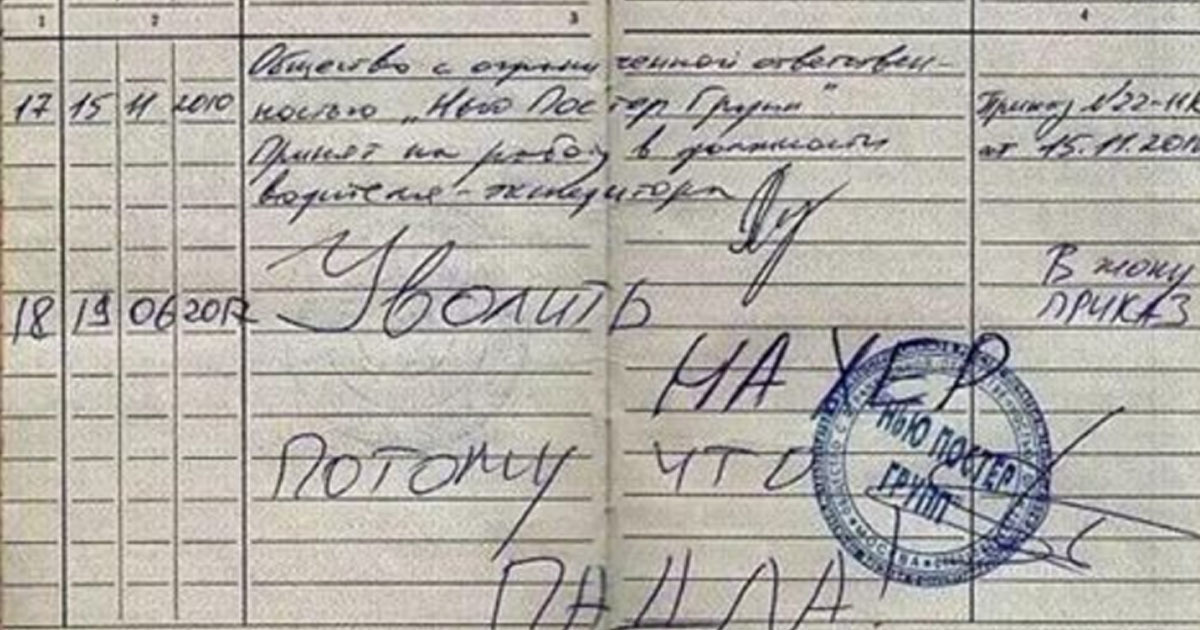 1 2 3 4
Общество с ограниченной ответствен-
17 15 11 2010 ностью „Нью Постер Групп" Приказ №22-
Принят на работу в должности от 15.11.2010
водителя-экспедитора
В жопу
18 19 06 2012 Уволить ПРИКАЗ
НАХЕР
НЬЮ ПОСТЕР
ПОТОМУ ЧТО
ГРУПП
МОСКВА
ПАДЛА!